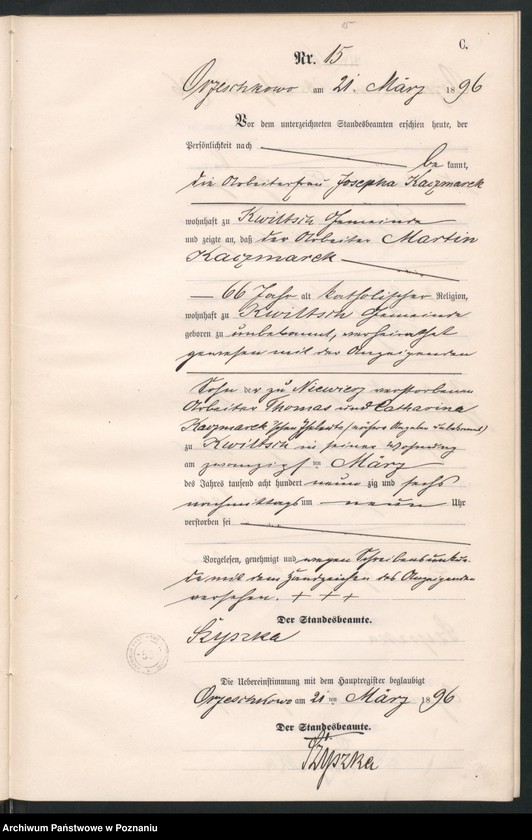 C.
Nr. 15
Orzeschkowo am 21. März 1896
Vor dem unterzeichneten Standesbeamten erschien heute, der
Persönlichkeit nach be kannt,
die Arbeiterfrau Josepha Kaczmarek
wohnhaft zu Kwiltsch Gemeinde
und zeigte an, daß der Arbeiter Martin
Kaczmarek
66 Jahr alt katholischer Religion,
wohnhaft zu Kwiltsch Gemeinde
geboren zu unbekannt, verheirathet
gewesen mit der Anzeigenden
Sohn der zu verstorbenen
Arbeiter Thomas und Catharina
Kaczmarek
zu Kwiltsch in seiner Wohnung
am zwanzigsten März
des Jahres tausend acht hundert neun zig und sechs
nachmittags um neun Uhr
verstorben sei
Vorgelesen, genehmigt und wegen Schreibensunkun-
de mit dem Handzeichen des Anzeigenden
versehen. + + +
Der Standesbeamte.
Szyszka
Die Uebereinstimmung mit dem Hauptregister beglaubigt
Orzeschkowo am 21 ten März 1896
Der Standesbeamte.
Szyszka
Archiwum Państwowe w Poznaniu